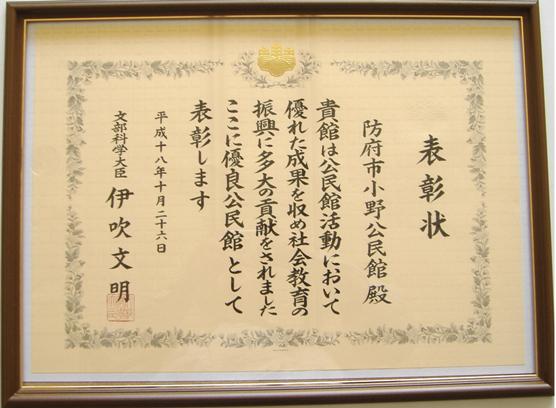 表彰状
防府市小野公民館殿
貴館は公民館活動において
優れた成果を収め社会教育の
振興に多大の貢献をされました
ここに優良公民館として
表彰します
平成十八年十月二十六日
文部科学大臣 伊吹文明